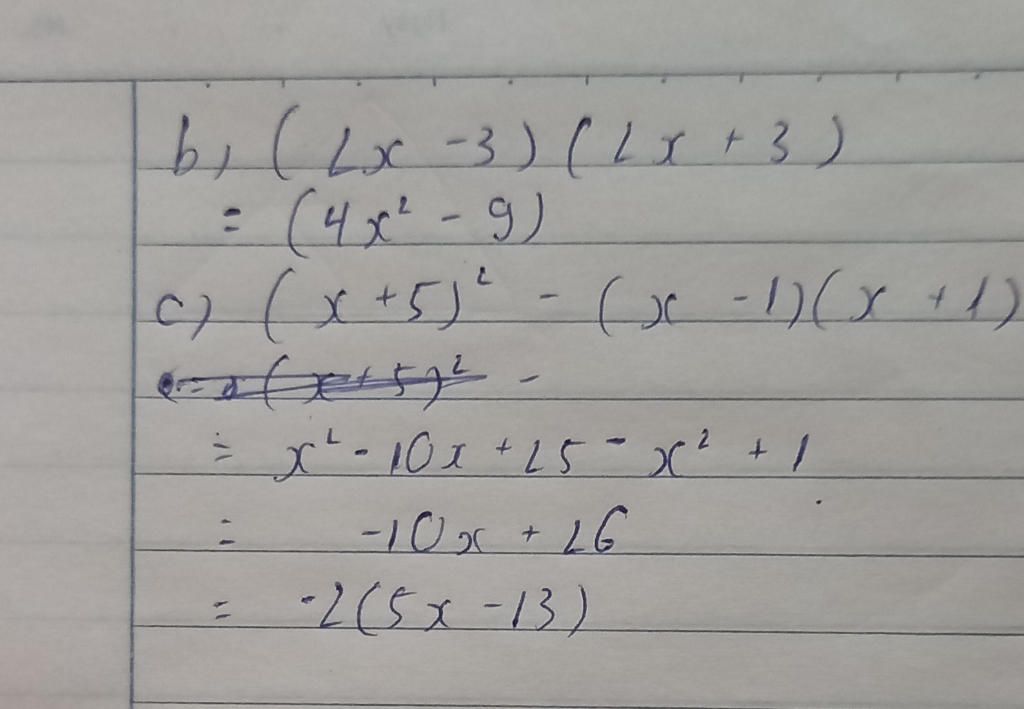 b, (2x - 3)(2x + 3)
= (4x² - 9)
c) (x + 5)² - (x - 1)(x + 1)
= (x + 5)² -
= x² - 10x + 25 - x² + 1
= -10x + 26
= -2(5x - 13)